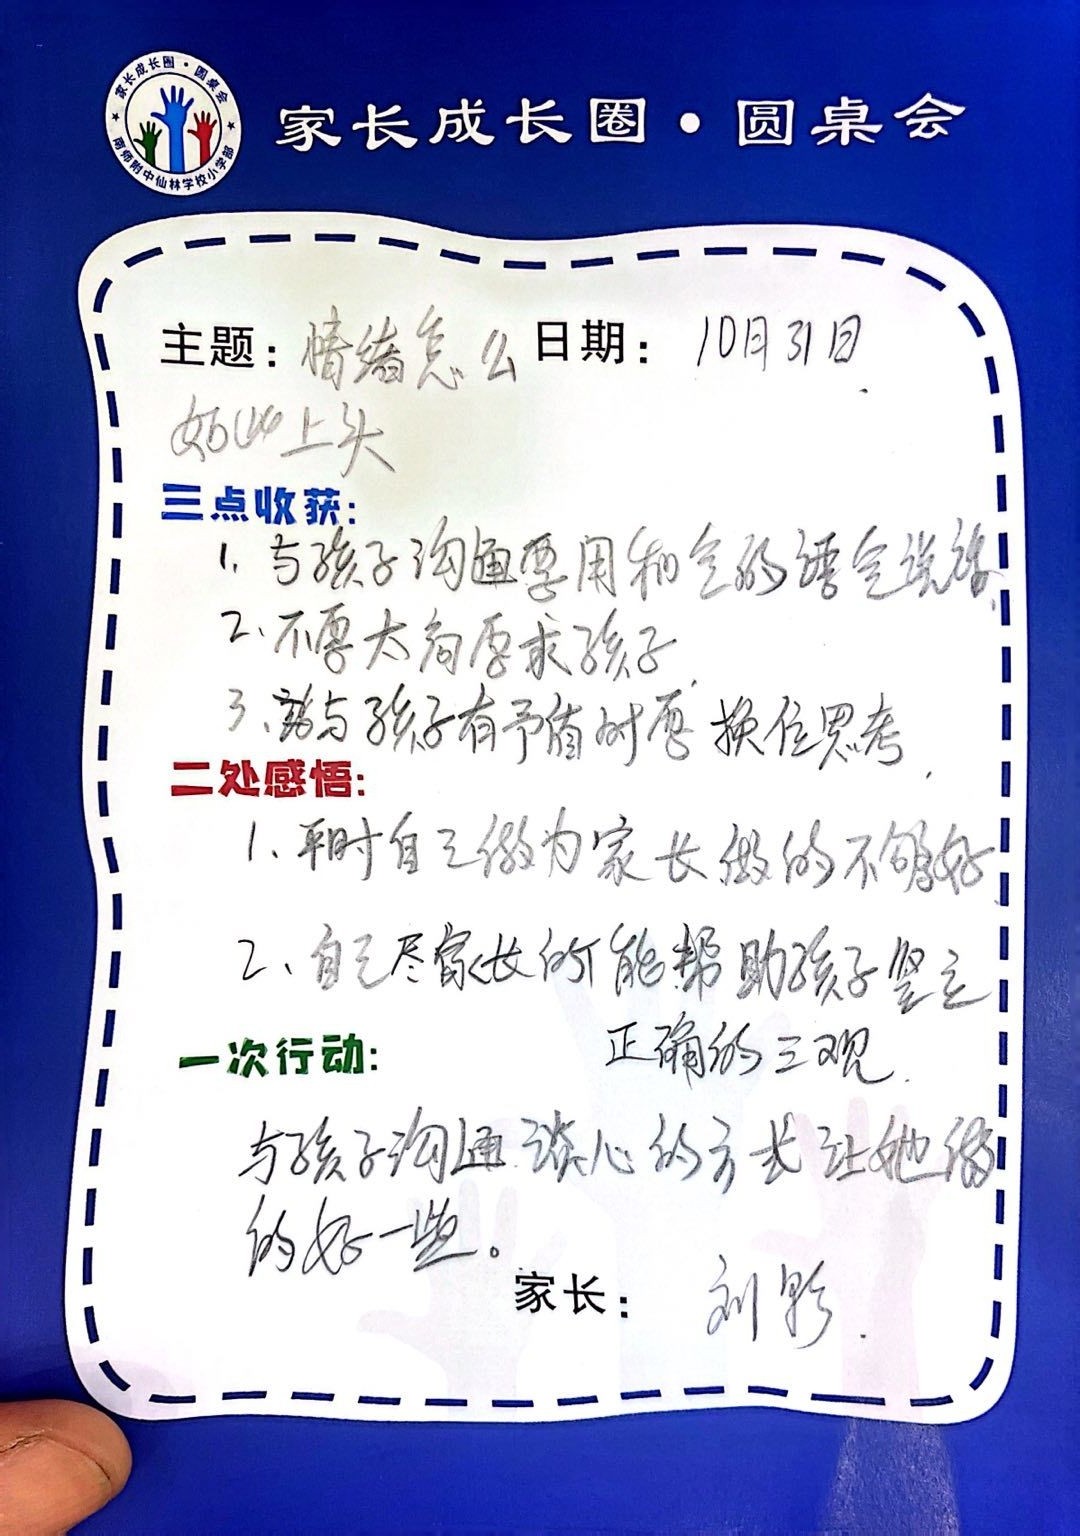 家长成长圈·圆桌会
南师附中仙林学校小学部
家长成长圈·圆桌会
主题：情绪怎么 日期：10月31日.
如此上头
三点收获：
1. 与孩子沟通要用和气的语气说话.
2. 不要太高要求孩子
3、与孩子有矛盾时要换位思考.
二处感悟：
1. 平时自己做为家长做的不够好.
2、自己尽家长所能帮助孩子竖立
正确的三观.
一次行动：
与孩子沟通谈心的方式让她做
的好一些。
家长：刘影.